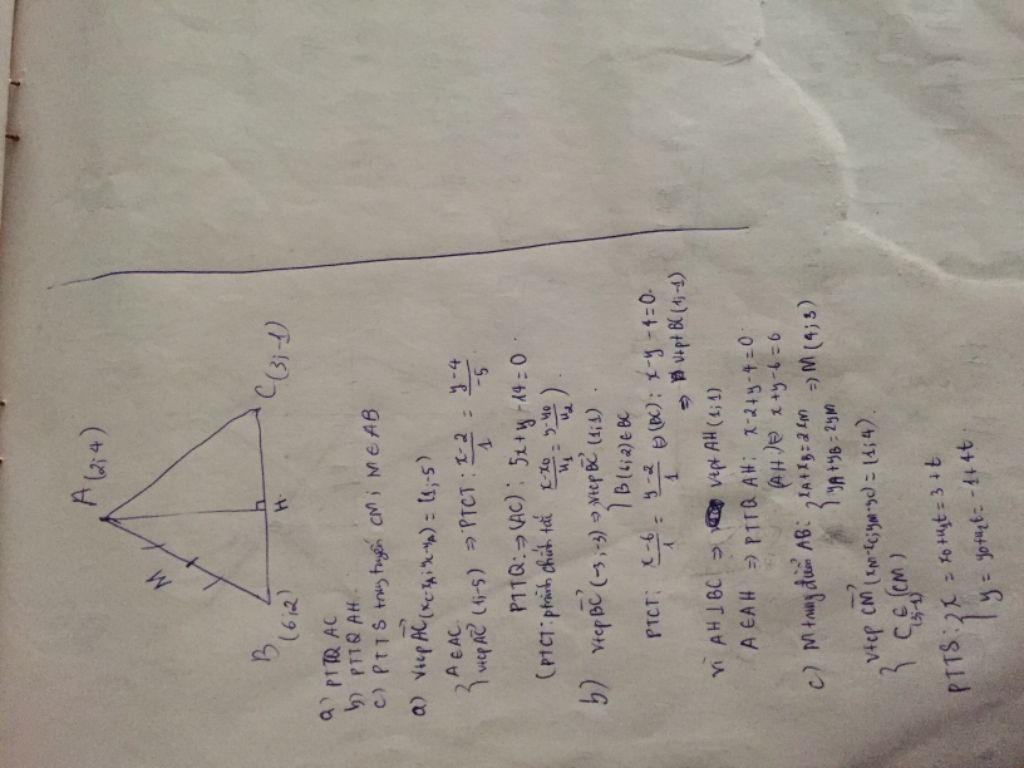 A (2;4)
M
B (6;2)
H
C (3;-1)
a) PTTQ AC
b) PTTQ AH.
c) PTTS trung tuyến CM; M ∈ AB
a) vtcp AC→ (xC-xA; yC-yA) = (1;-5)
{ A ∈ AC.
vtcp AC→ (1;-5) ⇒ PTCT: (x-2)/1 = (y-4)/-5.
PTTQ: ⇒ (AC): 5x + y - 14 = 0.
(PTCT: phtrình chính tắc (x-x0)/u1 = (y-y0)/u2).
b) vtcp BC→ (-3;-3) ⇒ vtcp BC→ (1;1)
{ B(6;2) ∈ BC
PTCT: (x-6)/1 = (y-2)/1 ⇔ (BC): x - y - 4 = 0.
⇒ vtpt BC (1;-1)
vì AH ⊥ BC ⇒ vtpt AH (1;1)
A ∈ AH ⇒ PTTQ AH: x-2+y-4=0
(AH) ⇔ x+y-6=0
c) M trung điểm AB: { xA+xB=2xM
yA+yB=2yM ⇒ M (4;3)
vtcp CM→ (xM-xC; yM-yC) = (1;4).
{ C(3;-1) ∈ (CM)
PTTS: { x = x0+u1t = 3+t
y = y0+u2t = -1+4t.